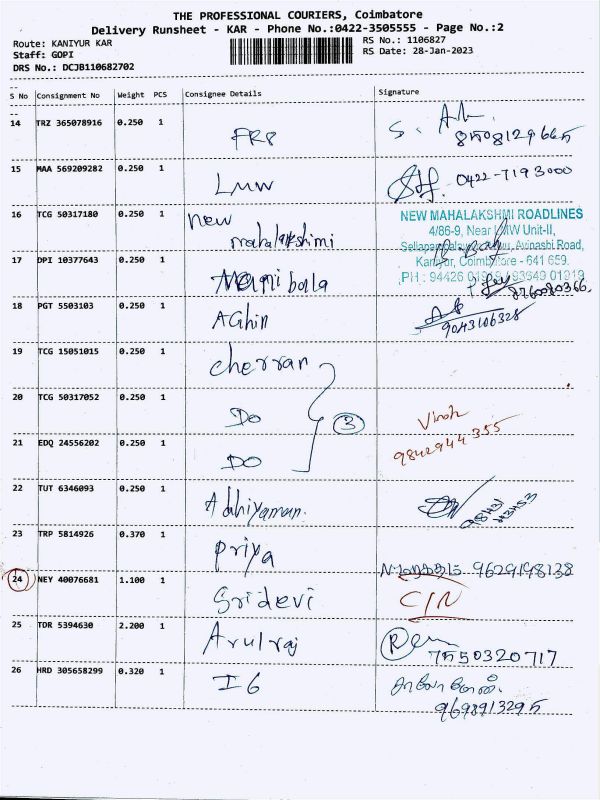 THE PROFESSIONAL COURIERS, Coimbatore
Delivery Runsheet - KAR - Phone No.:0422-3505555 - Page No.:2
Route: KANIYUR KAR
RS No.: 1106827
Staff: GOPI
RS Date: 28-Jan-2023
DRS No.: DCJB110682702
S No Consignment No Weight PCS Consignee Details Signature
14 TRZ 365078916 0.250 1 FR8
8508129665
15 MAA 569209282 0.250 1 LMW 0422-7193000
16 TCG 50317180 0.250 1 New mahalakshmi
NEW MAHALAKSHMI ROADLINES
4/86-9, Near LMW Unit-II,
Avinashi Road,
Kaniyur, Coimbatore - 641 659.
PH : 94426 01919 / 93649 01919
17 DPI 10377643 0.250 1 Manibala 8760080366
18 PGT 5503103 0.250 1 AGhin 9043106328
19 TCG 15051015 0.250 1 Cherran
20 TCG 50317052 0.250 1 DO 3 Vinoth
9842944355
21 EDQ 24556202 0.250 1 DO
22 TUT 6346093 0.250 1 Adhiyaman.
23 TRP 5814926 0.370 1 Priya
9629198138
24 NEY 40076681 1.100 1 Sridevi C/N
25 TDR 5394630 2.200 1 Arulraj
7550320717
26 HRD 305658299 0.320 1 I6
9698913295